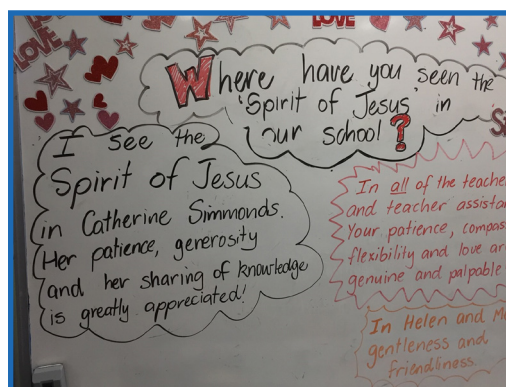 LOVE
LOVE
LOVE
Where have you seen the
'Spirit of Jesus' in
our school?
I see the
Spirit of Jesus
in Catherine Simmonds.
Her patience, generosity
and her sharing of knowledge
is greatly appreciated!
In all of the teache
and teacher assista
Your patience, compas
flexibility and love ar
genuine and palpable
In Helen and M
gentleness and
friendliness